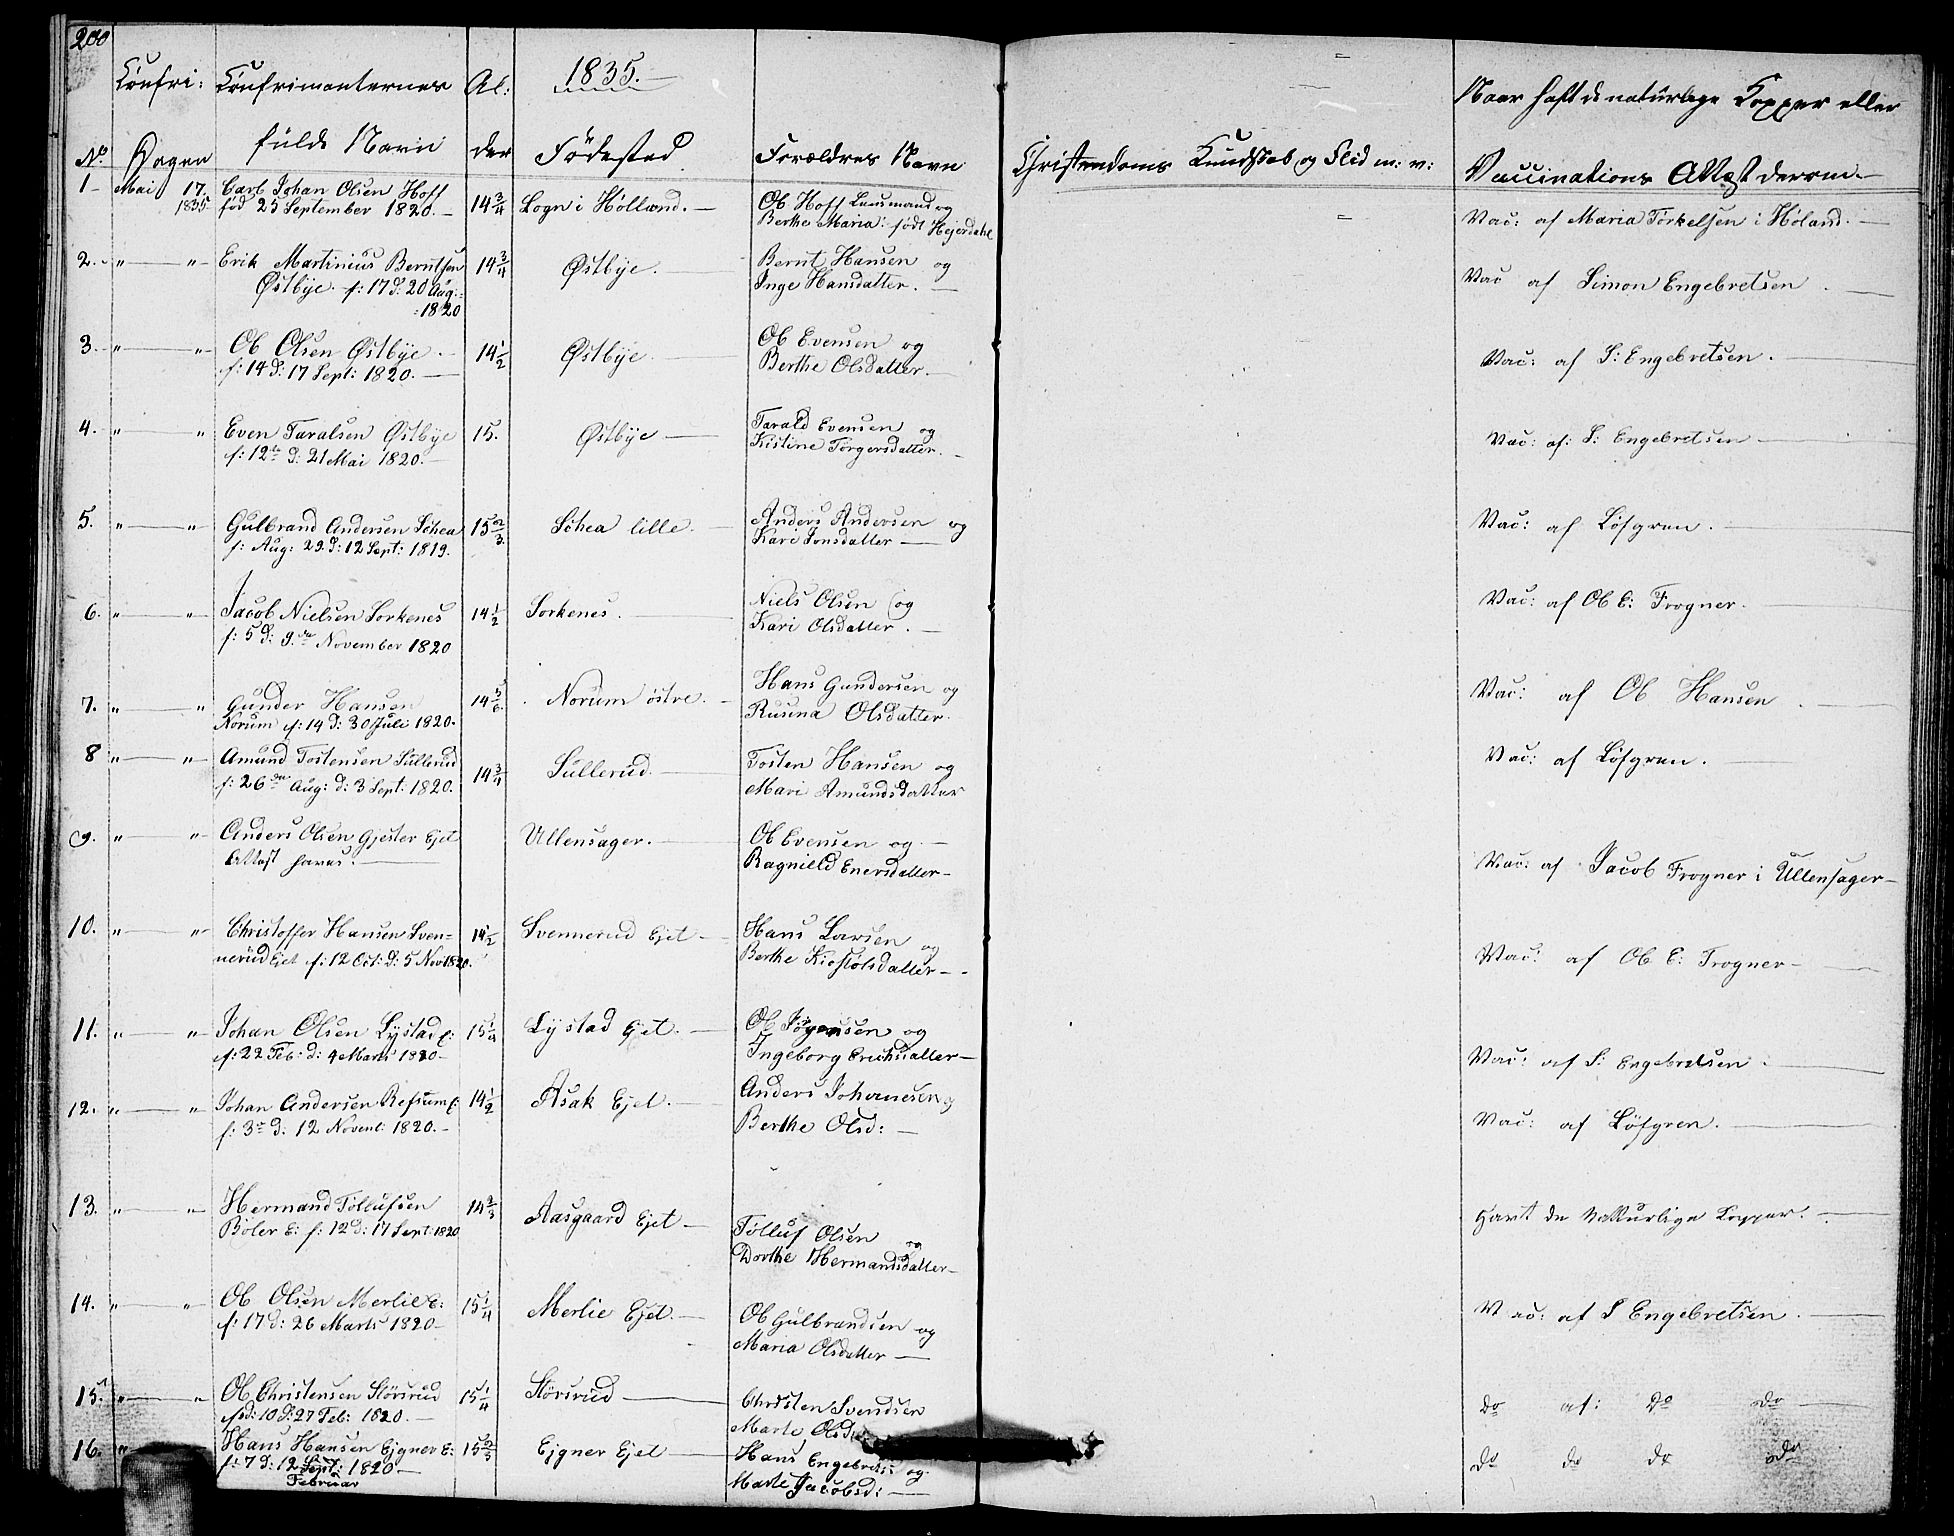 200
1835.
Confri: Confrimanternes Al: Naar haft de naturlige Kopper eller
No Dagen fulde Navn der Fødested Forældres Navn Christendoms Kundskab og Flid m: v: Vaccinations Attest derom.
1 Mai 17. Carl Johan Olsen Hoff 14 3/4 Sogn i Hølland. Ole Hoff Lensmand og Vac: af Maria Torkelsen i Høland.
1835 fød 25 September 1820. Berthe Maria: født Hejerdahl
2. " " Erik Martinius Berntsen 14 3/4 Østbye. Bernt Hansen og Vac af Simon Engebretsen
Østbye. f: 17 d: 20 Aug: Inge Hansdatter.
1820
3. " " Ole Olsen Østbye. 14 1/2 Østbye Ole Evensen og Vac: af S: Engebretsen.
f: 14 d: 17 Sept: 1820. Berthe Olsdatter.
4. " " Even Taralsen Østbye 15. Østbye Tarald Evensen og Vac: af: S: Engebretsen
f: 12te d: 21 Mai 1820. Kistine Torgersdatter.
5. " " Gulbrand Andersen Schea 15 2/3 Schea lille. Anders Andersen og Vac: af Løfgren.
f: Aug: 29. d: 12 Sept: 1819. Kari Jonsdatter
6. " " Jacob Nielsen Sorkenes 14 1/2 Sorkenes. Niels Olsen og Vac: af Ole E: Frogner.
f: 5 d: 9de November 1820 Kari Olsdatter.
7. " " Gunder Hansen 14 5/6. Norum østre. Hans Gundersen og Vac: af Ole Hansen
Norum f: 14 d: 30 Juli 1820. Rusina Olsdatter.
8 " " Amund Tostensen Sullerud 14 3/4 Sullerud. Tosten Hansen og Vac: af Løfgren.
f: 26de Aug: d: 3 Sept: 1820. Mari Amundsdatter
9. " " Anders Olsen Gjester Ejet Ullensager. Ole Evensen og Vac: af Jacob Frogner i Ullensager
Attest haves. Ragnield Enersdatter
10. " " Christoffer Hansen Sven= 14 1/2 Svennerud Ejet Hans Larsen og Vac: af Ole E: Frogner
nerud Ejet f: 12 Oct: d: 5 Nov 1820. Berthe Kiostølsdatter
11. " " Johan Olsen Lystad E: 15 1/4 Lystad Ejet. Ole Jørgensen og Vac: af S: Engebretsen.
f: 22 Feb: d: 4 Marts 1820 Ingeborg Erichsdatter
12. " " Johan Andersen Refsum E: 14 1/2 Asak Ejet. Anders Johannesen og Vac: af Løfgren.
f: 3de d: 12 Novemb: 1820. Berthe Olsd:
13. " " Hermand Tollufsen 14 2/3 Aasgaard Ejet Tolluf Olsen og Havt de naturlige Kopper.
Boler E: f: 12 d: 17 Sept: 1820 Dorthe Hermandsdatter
14. " " Ole Olsen Merlie E: 15 1/4 Merlie Ejet. Ole Gulbrandsen og Vac: af S Engebretsen.
f: 17 d: 26 Marts 1820 Maria Olsdatter
15. " " Ole Christensen Storsrud 15 1/4 Storsrud Christen Svendsen do af: do do
fød: 10 d: 27 Feb: 1820. Marte Olsd
16. " Hans Hansen Ejgner E: 15 Ejgner Ejet Hans Engebrets: og do do do do
f: 7 d: 12 Sept: 1820 Marte Jacobsd:
Februar